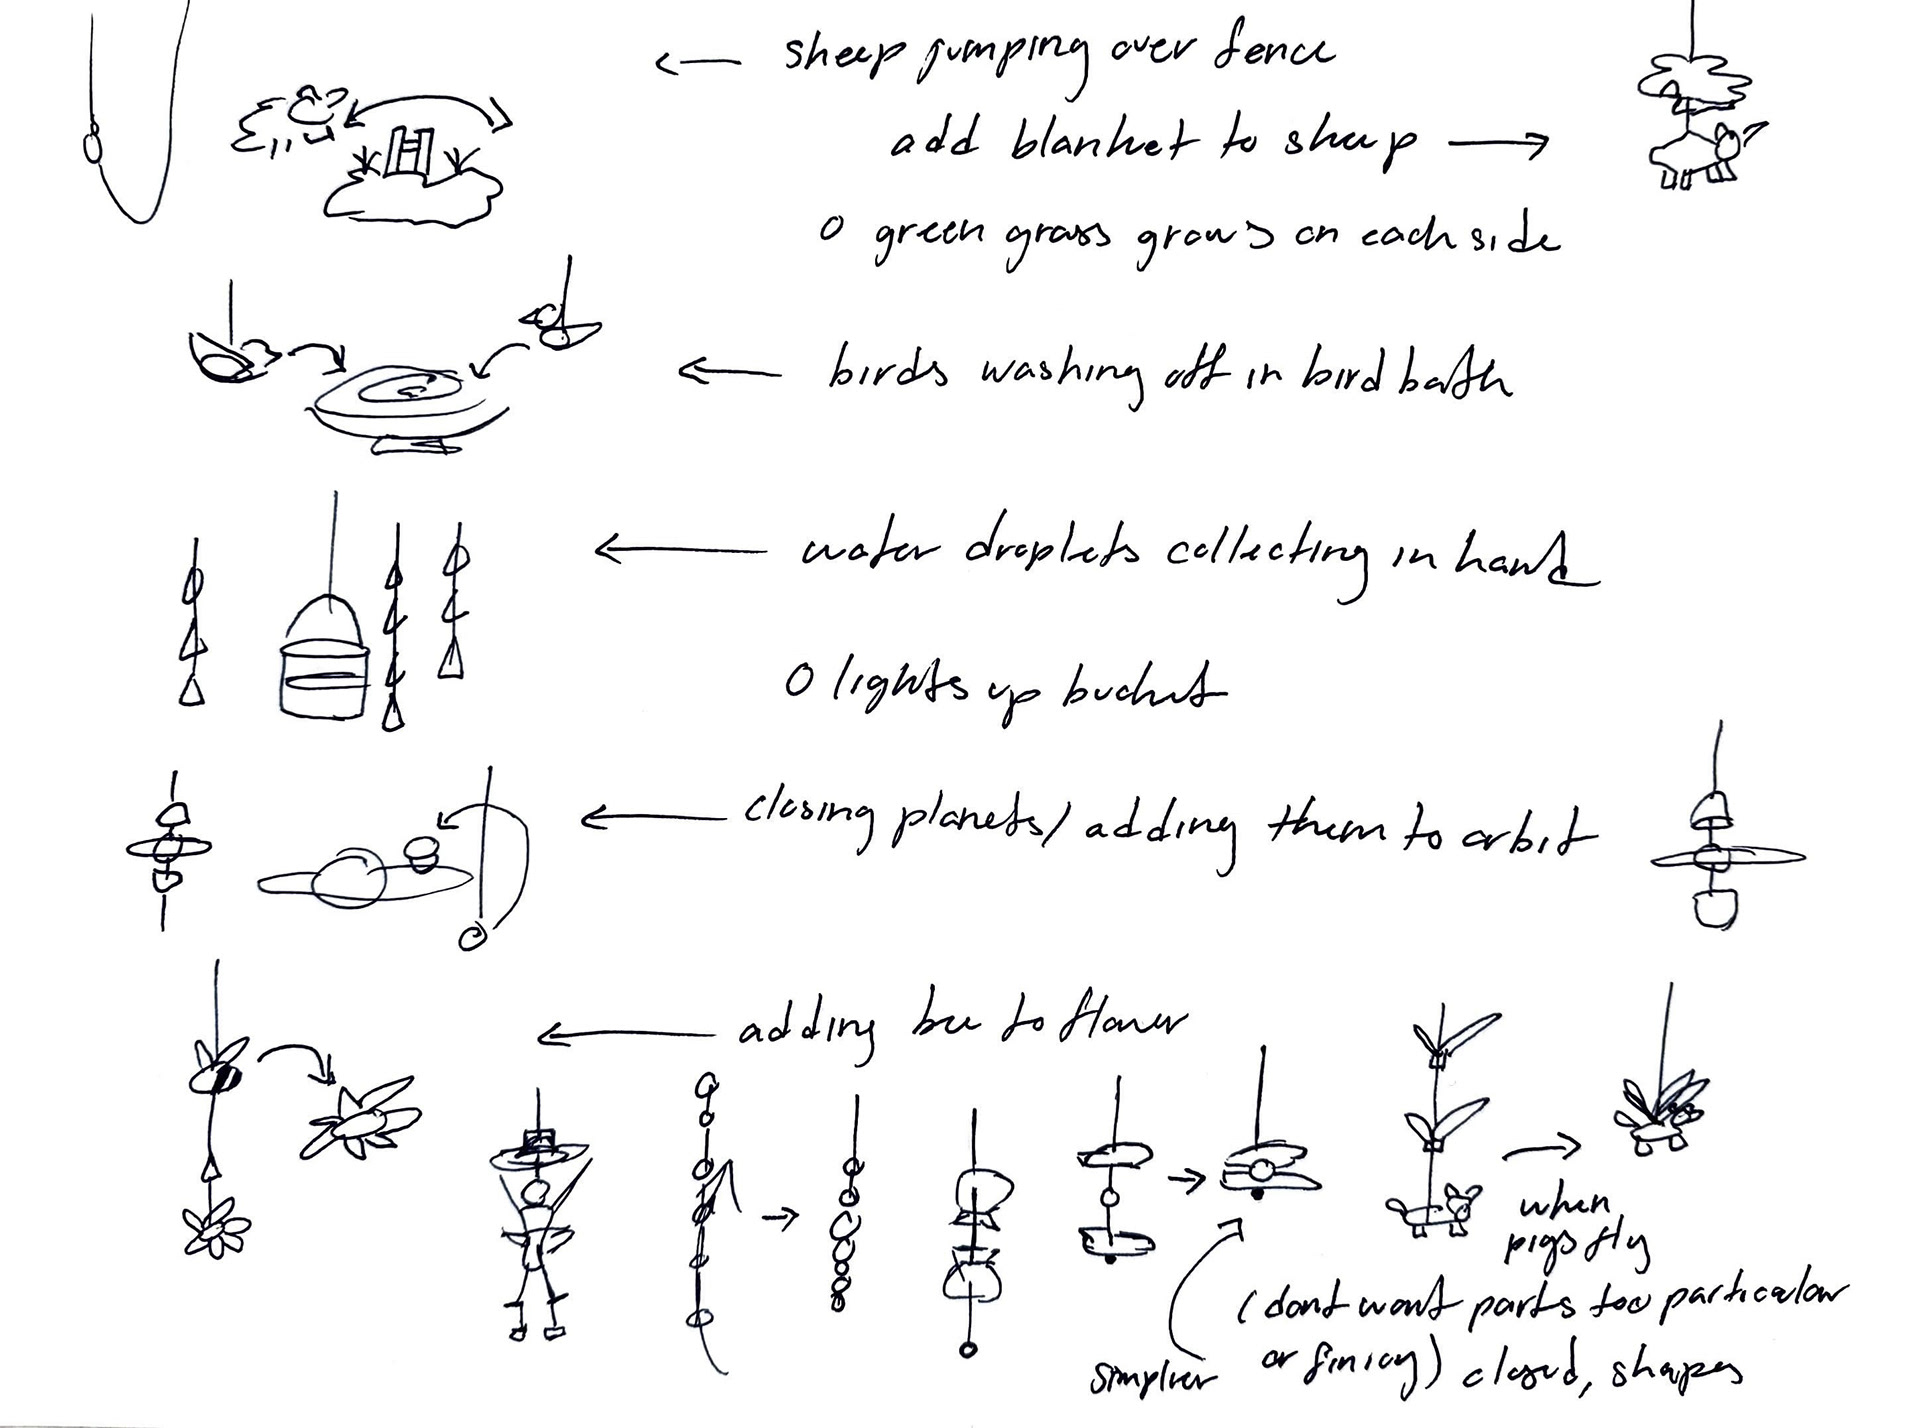 sheep jumping over fence
add blanket to sheep
o green grass grows on each side
birds washing off in bird bath
water droplets collecting in hand
o lights up bucket
closing planets/ adding them to orbit
adding bee to flower
when
pigs fly
(dont want parts too particular
or finicy) closed, shapes
simplier